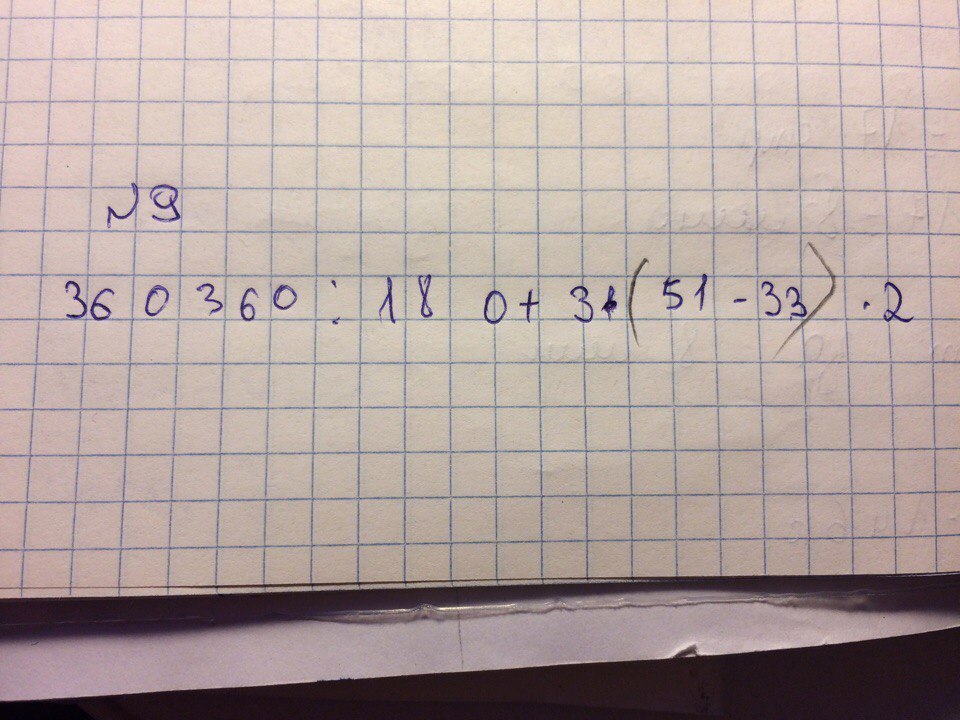 №9
360 360 : 18 0 + 31 (51 - 33) · 2